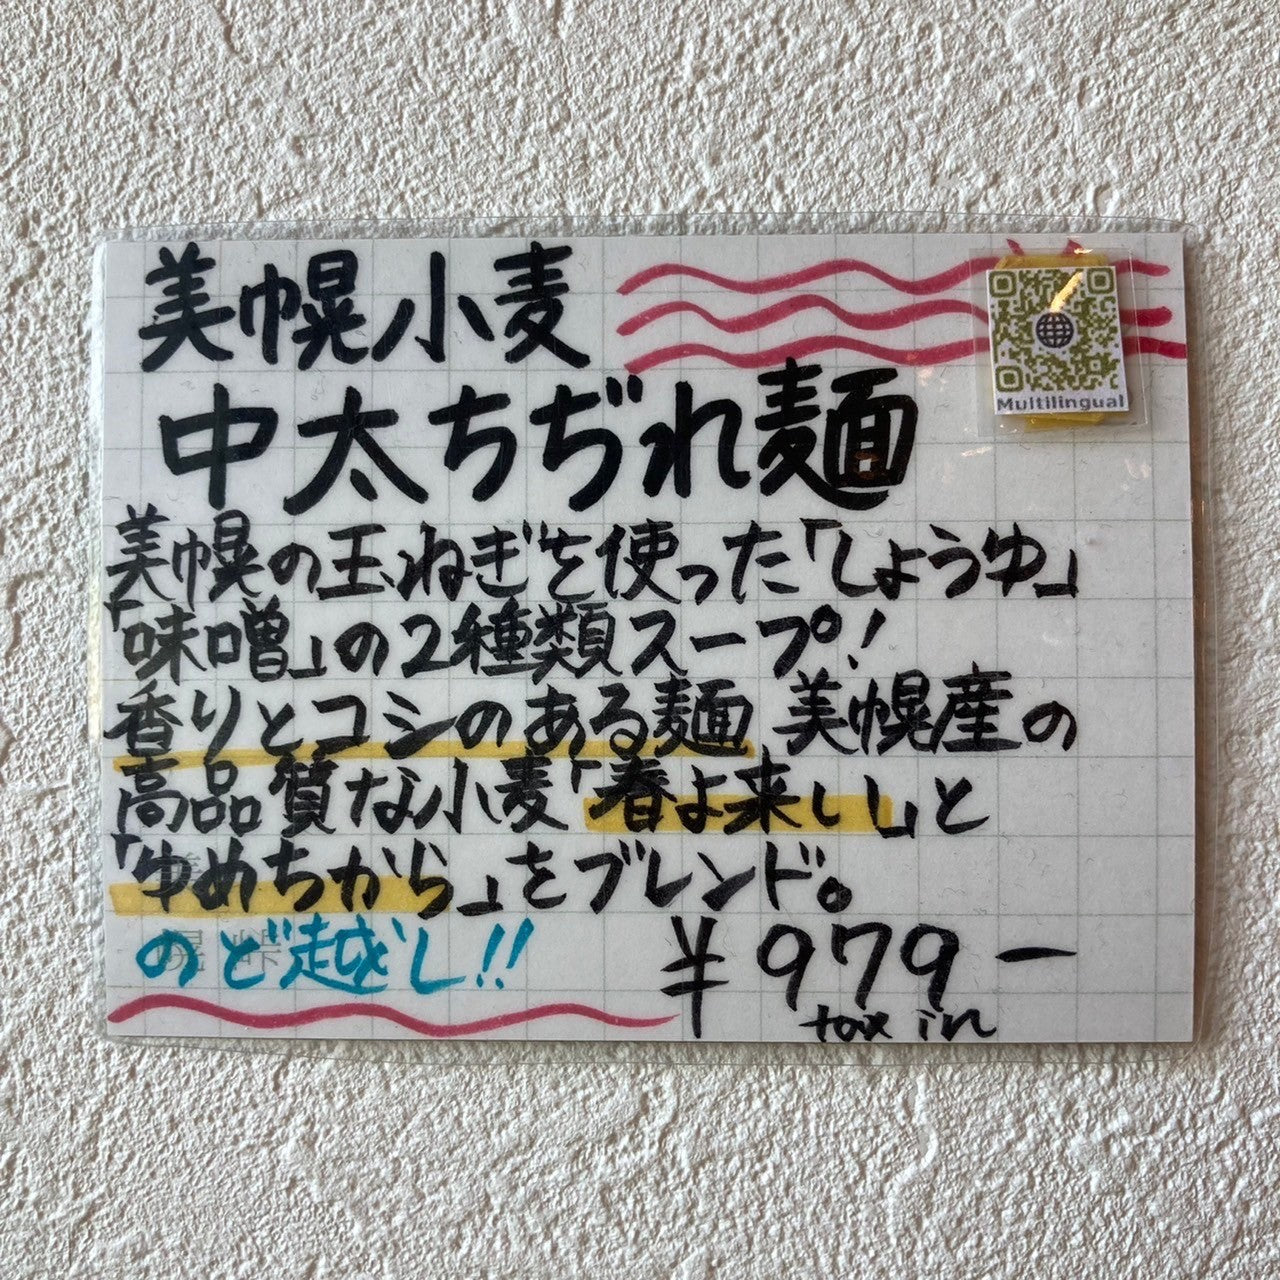 美幌小麦
中太ちぢれ麺
美幌の玉ねぎを使った「しょうゆ」
「味噌」の2種類スープ!
香りとコシのある麺 美幌産の
高品質な小麦「春よ来い」と
「ゆめちから」をブレンド。
のど越し!!
¥979－
tax in
Multilingual